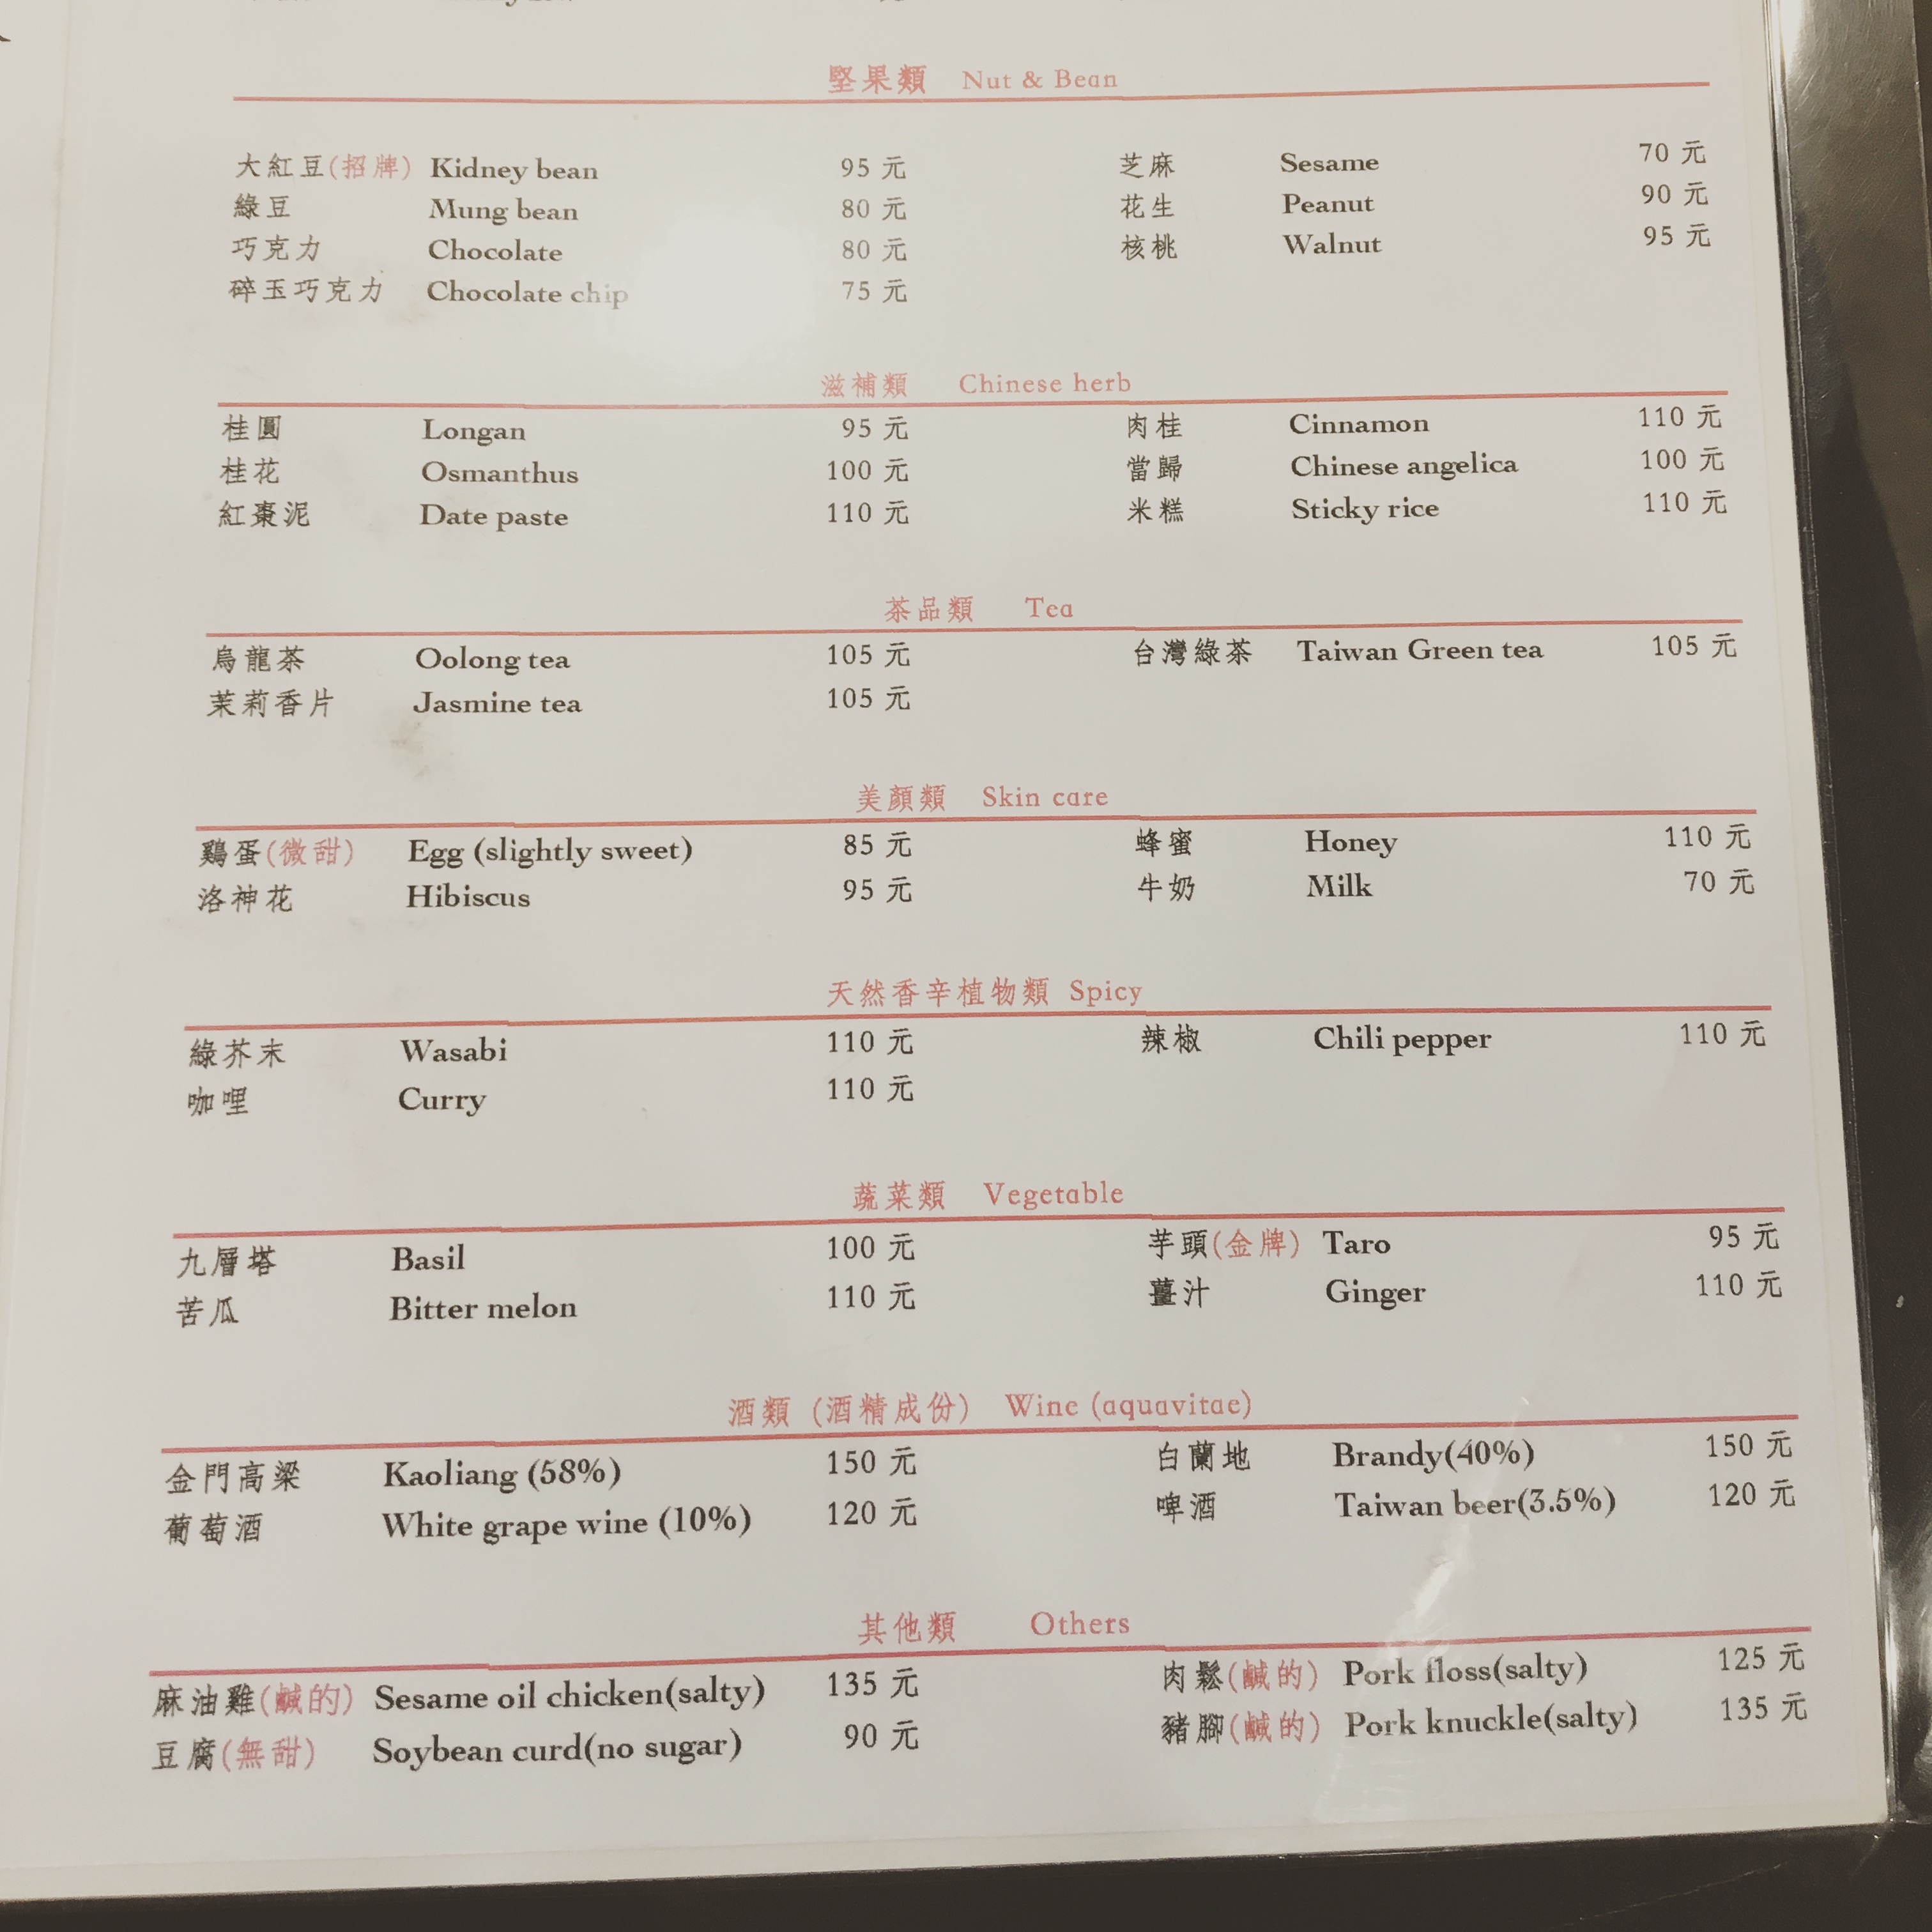 堅果類 Nut & Bean
大紅豆(招牌) Kidney bean 95 元 芝麻 Sesame 70 元
綠豆 Mung bean 80 元 花生 Peanut 90 元
巧克力 Chocolate 80 元 核桃 Walnut 95 元
碎玉巧克力 Chocolate chip 75 元
滋補類 Chinese herb
桂圓 Longan 95 元 肉桂 Cinnamon 110 元
桂花 Osmanthus 100 元 當歸 Chinese angelica 100 元
紅棗泥 Date paste 110 元 米糕 Sticky rice 110 元
茶品類 Tea
烏龍茶 Oolong tea 105 元 台灣綠茶 Taiwan Green tea 105 元
茉莉香片 Jasmine tea 105 元
美顏類 Skin care
鷄蛋(微甜) Egg (slightly sweet) 85 元 蜂蜜 Honey 110 元
洛神花 Hibiscus 95 元 牛奶 Milk 70 元
天然香辛植物類 Spicy
綠芥末 Wasabi 110 元 辣椒 Chili pepper 110 元
咖哩 Curry 110 元
蔬菜類 Vegetable
九層塔 Basil 100 元 芋頭(金牌) Taro 95 元
苦瓜 Bitter melon 110 元 薑汁 Ginger 110 元
酒類 (酒精成份) Wine (aquavitae)
金門高梁 Kaoliang (58%) 150 元 白蘭地 Brandy(40%) 150 元
葡萄酒 White grape wine (10%) 120 元 啤酒 Taiwan beer(3.5%) 120 元
其他類 Others
麻油雞(鹹的) Sesame oil chicken(salty) 135 元 肉鬆(鹹的) Pork floss(salty) 125 元
豆腐(無甜) Soybean curd(no sugar) 90 元 豬腳(鹹的) Pork knuckle(salty) 135 元